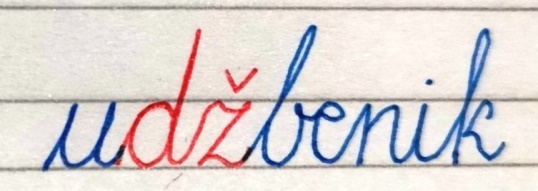 udžbenik